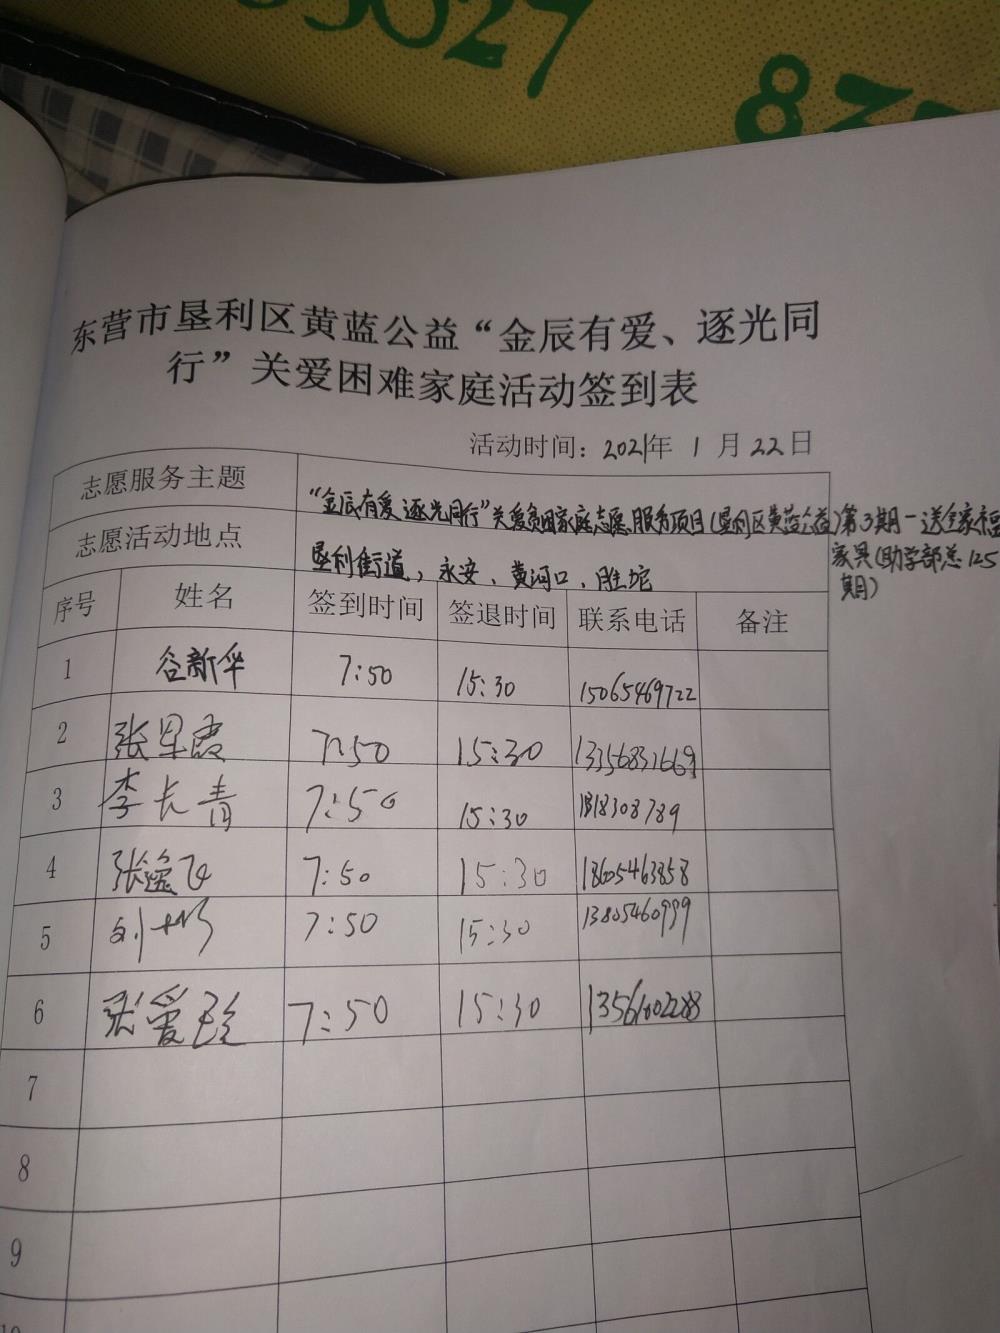 3027
83
东营市垦利区黄蓝公益“金辰有爱、逐光同
行”关爱困难家庭活动签到表
活动时间：2021年 1 月 22 日
志愿服务主题 “金辰有爱 逐光同行”关爱贫困家庭志愿服务项目(垦利区黄蓝公益)第3期-送全家福
家具(助学部总125
期)
志愿活动地点 垦利街道，永安、黄河口、胜坨
序号 姓名 签到时间 签退时间 联系电话 备注
1 谷新华 7:50 15:30 15065469722
2 张翠霞 7:50 15:30 13356831669
3 李长青 7:50 15:30
4 张逸飞 7:50 15:30 18605463858
5 刘 7:50 15:30 13805460999
6 张爱 7:50 15:30 13561002288
7
8
9
10